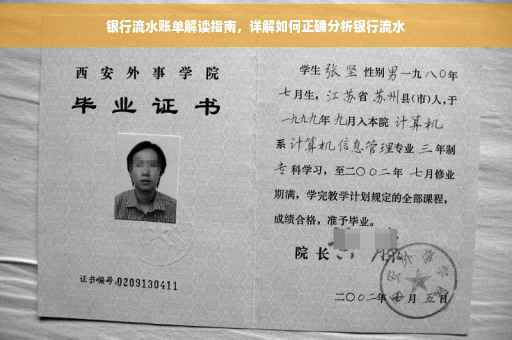 银行流水账单解读指南，详解如何正确分析银行流水
西安外事学院
毕业证书
证书编号:0209130411
学生 张坚 性别男一九八〇年
七月生，江苏省苏州县(市)人，于
一九九九年九月入本院 计算机
系计算机信息管理专业 三 年制
专科学习，至二〇〇二年 七月修业
期满，学完教学计划规定的全部课程，
成绩合格，准予毕业。
院长
二〇〇二年 月五日